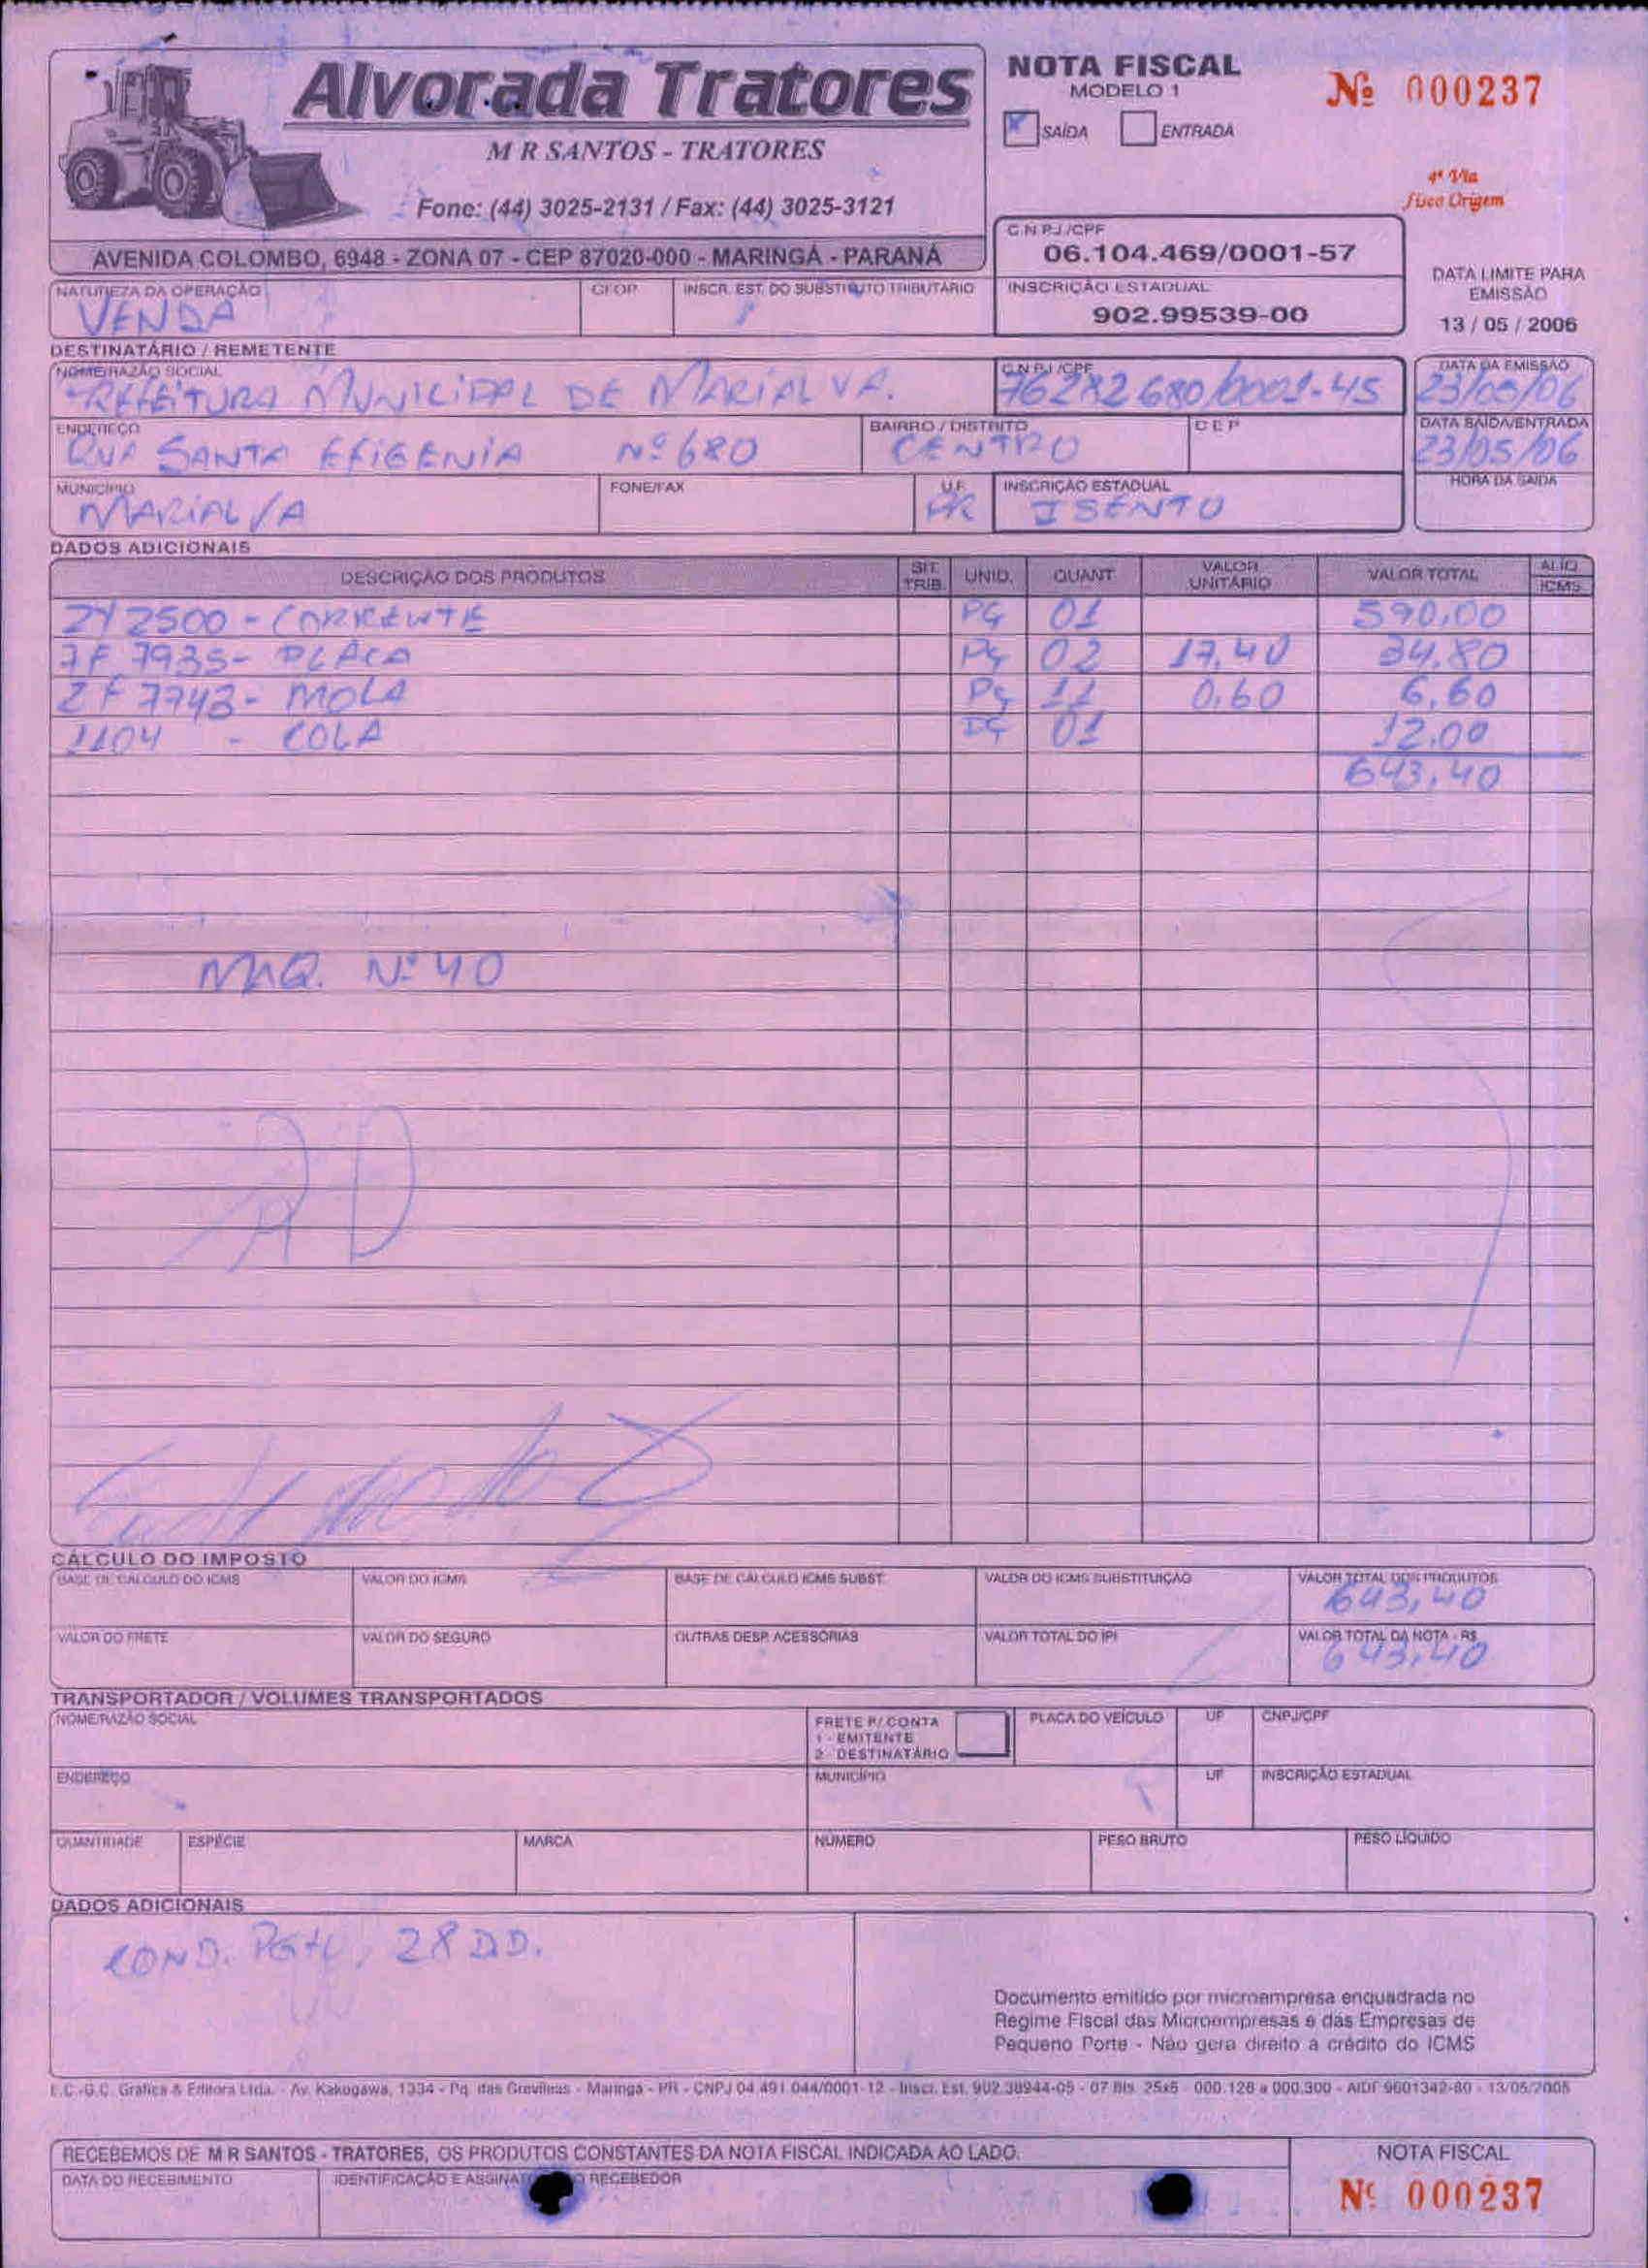 Alvorada Tratores
M R SANTOS - TRATORES
Fone: (44) 3025-2131 / Fax: (44) 3025-3121
AVENIDA COLOMBO, 6948 - ZONA 07 - CEP 87020-000 - MARINGÁ - PARANÁ
NOTA FISCAL
MODELO 1
X SAÍDA ENTRADA
Nº 000237
4ª Via
fisco Origem
C.N.P.J./CPF
06.104.469/0001-57
INSCRIÇÃO ESTADUAL
902.99539-00
DATA LIMITE PARA
EMISSÃO
13 / 05 / 2006
NATUREZA DA OPERAÇÃO CFOP INSCR. EST. DO SUBSTITUTO TRIBUTÁRIO
VENDA
DESTINATÁRIO / REMETENTE
NOME/RAZÃO SOCIAL C.N.P.J./CPF DATA DA EMISSÃO
PREFEITURA MUNICIPAL DE MARIALVA. 76282680/0001-45 23/05/06
ENDEREÇO BAIRRO / DISTRITO CEP DATA SAÍDA/ENTRADA
RUA SANTA EFIGENIA Nº 680 CENTRO 23/05/06
MUNICÍPIO FONE/FAX U.F. INSCRIÇÃO ESTADUAL HORA DA SAÍDA
MARIALVA PR ISENTO
DADOS ADICIONAIS
DESCRIÇÃO DOS PRODUTOS SIT. TRIB. UNID. QUANT. VALOR UNITÁRIO VALOR TOTAL ALIQ. ICMS
2Y2500 - CORRENTE PÇ 01 590,00
7F 7935 - PLACA PÇ 02 17,40 34,80
2F 7743 - MOLA PÇ 11 0,60 6,60
1104 - COLA PÇ 01 12,00
643,40
MAQ. Nº 40
CÁLCULO DO IMPOSTO
BASE DE CÁLCULO DO ICMS VALOR DO ICMS BASE DE CÁLCULO ICMS SUBST. VALOR DO ICMS SUBSTITUIÇÃO VALOR TOTAL DOS PRODUTOS
643,40
VALOR DO FRETE VALOR DO SEGURO OUTRAS DESP. ACESSÓRIAS VALOR TOTAL DO IPI VALOR TOTAL DA NOTA - R$
643,40
TRANSPORTADOR / VOLUMES TRANSPORTADOS
NOME/RAZÃO SOCIAL FRETE P/ CONTA PLACA DO VEÍCULO UF CNPJ/CPF
1 - EMITENTE
2 - DESTINATÁRIO
ENDEREÇO MUNICÍPIO UF INSCRIÇÃO ESTADUAL
QUANTIDADE ESPÉCIE MARCA NÚMERO PESO BRUTO PESO LÍQUIDO
DADOS ADICIONAIS
COND. PGTO, 28 DD.
Documento emitido por microempresa enquadrada no
Regime Fiscal das Microempresas e das Empresas de
Pequeno Porte - Não gera direito a crédito do ICMS
Gráfica & Editora Ltda. - Av. Kakogawa, 1334 - Pq. das Grevíleas - Maringá - PR - CNPJ 04.491.044/0001-12 - Inscr. Est. 902.38944-05 - 07 Bls. 25x5 - 000.126 a 000.300 - AIDF 9601342-80 - 13/05/2005
RECEBEMOS DE M R SANTOS - TRATORES, OS PRODUTOS CONSTANTES DA NOTA FISCAL INDICADA AO LADO.
DATA DO RECEBIMENTO IDENTIFICAÇÃO E RECEBEDOR
NOTA FISCAL
Nº 000237